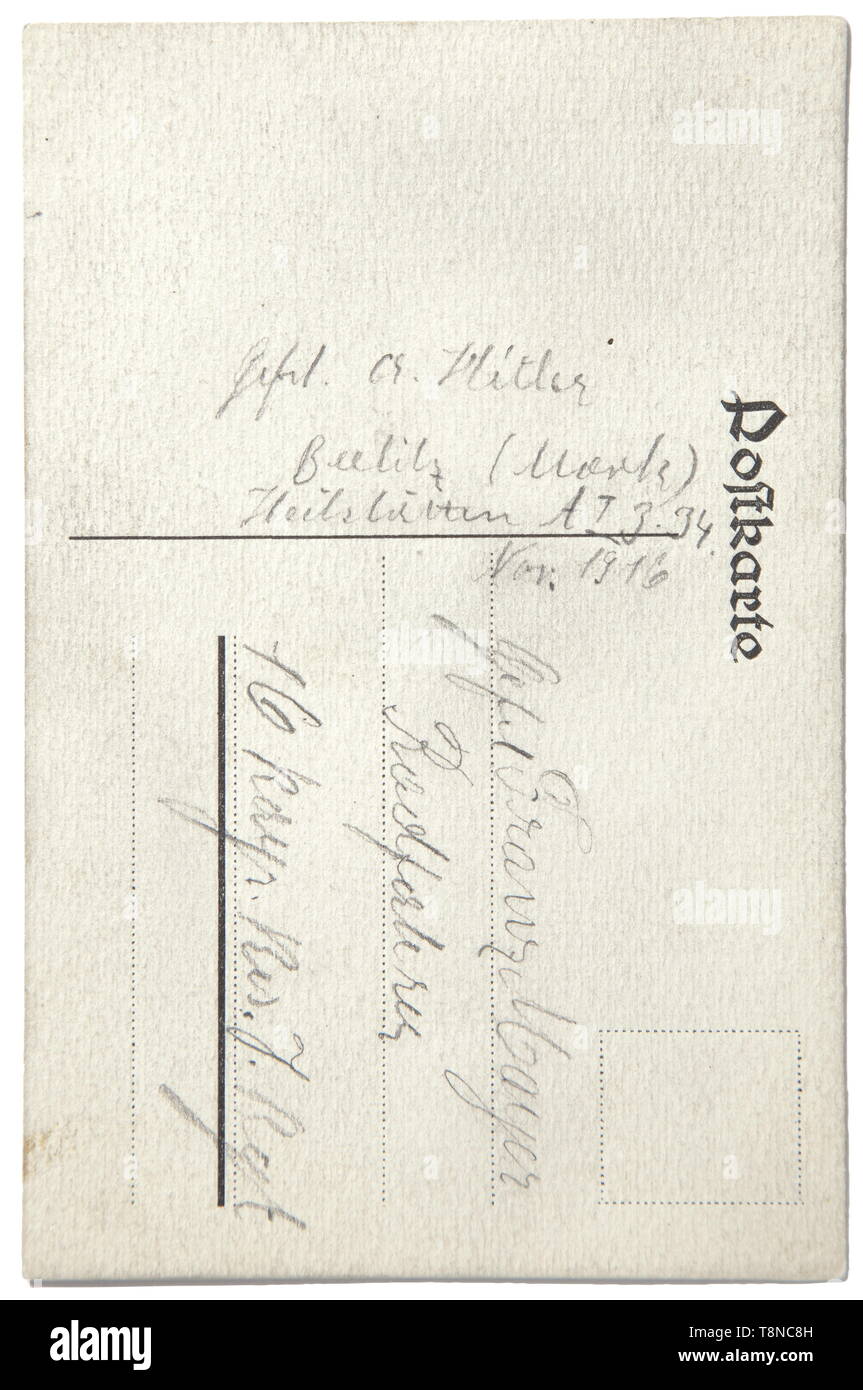 Postkarte
Gefrt. A. Hitler
Beelitz (Mark)
Heilstätten A I 3. 34.
Nov. 1916
Gefrt Franz Mayer
Radfahrer
16 bayr. Res. J. Regt
alamy
alamy
alamy
alamy
Image ID: T8NC8H
www.alamy.com